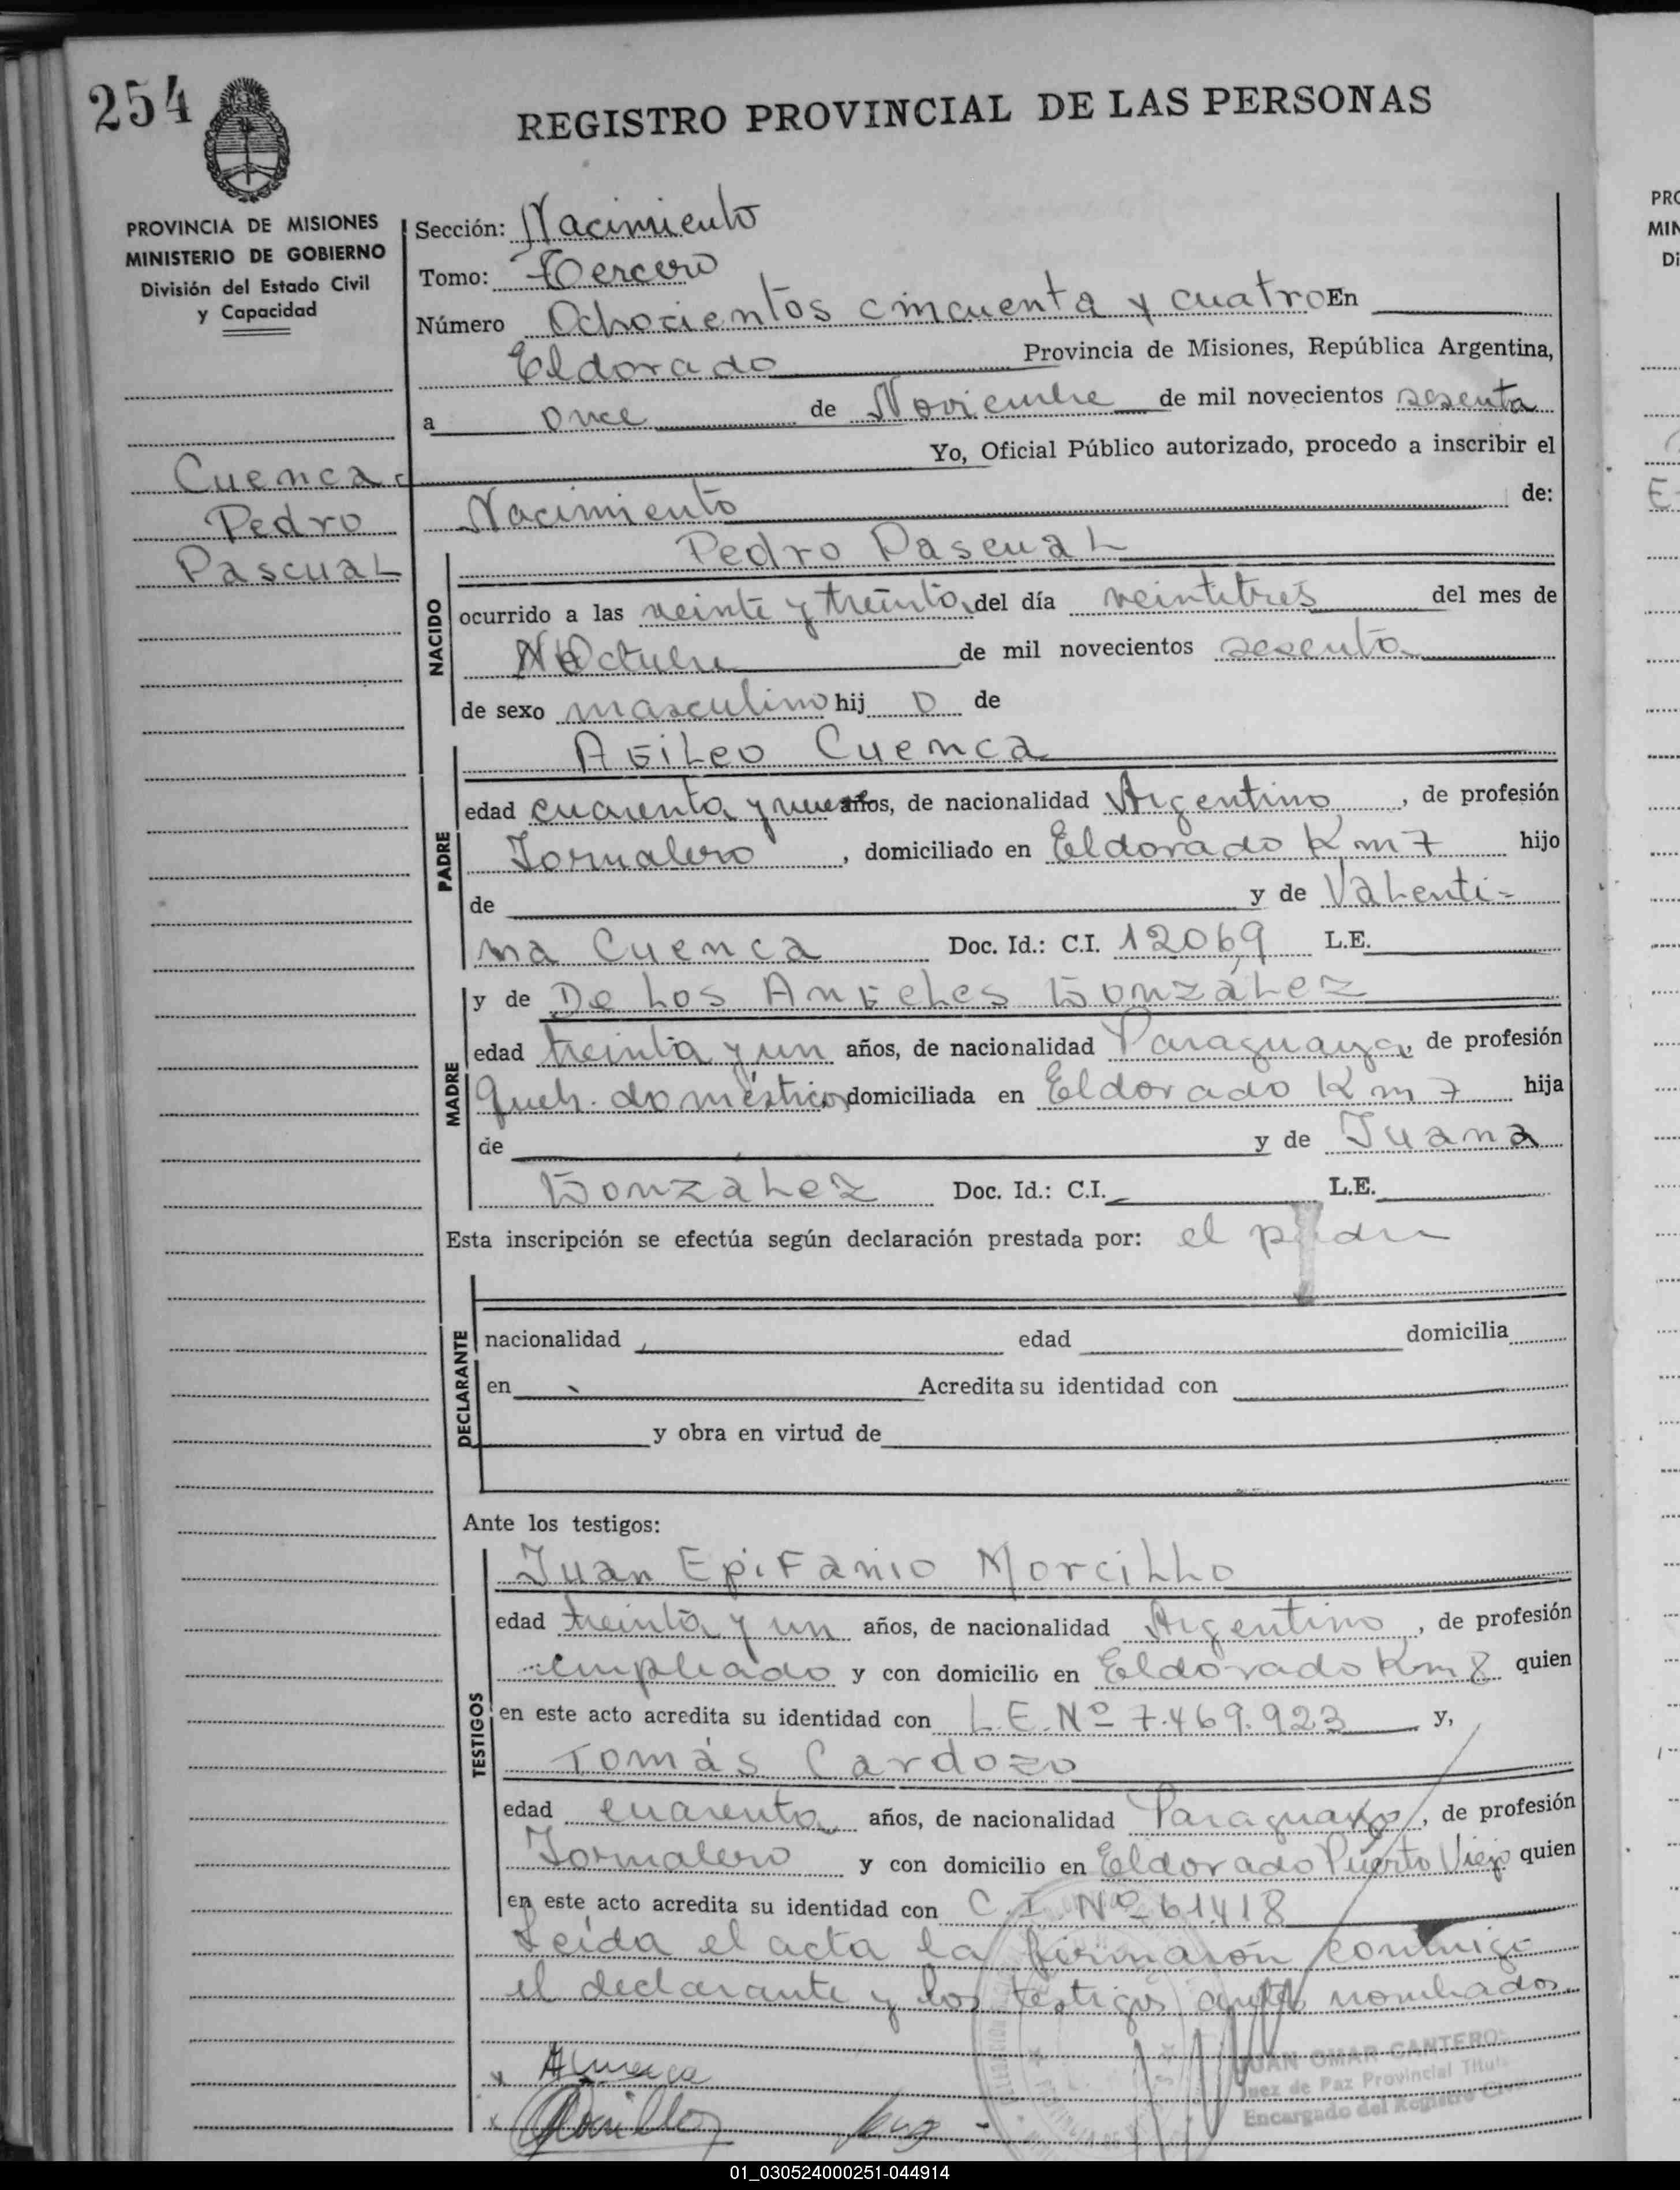 254
REGISTRO PROVINCIAL DE LAS PERSONAS
PROVINCIA DE MISIONES
MINISTERIO DE GOBIERNO
División del Estado Civil
y Capacidad
Cuenca
Pedro
Pascual
Sección: Nacimiento
Tomo: Tercero
Número Ochocientos cincuenta y cuatro En
Eldorado Provincia de Misiones, República Argentina,
a once de Noviembre de mil novecientos sesenta
Yo, Oficial Público autorizado, procedo a inscribir el
Nacimiento de:
NACIDO
Pedro Pascual
ocurrido a las veinte y treinta del día veintitres del mes de
Octubre de mil novecientos sesenta
de sexo masculino hij o de
PADRE
Agileo Cuenca
edad cuarenta y nueve años, de nacionalidad Argentino, de profesión
Jornalero, domiciliado en Eldorado Km 7 hijo
de y de Valenti=
na Cuenca Doc. Id.: C.I. 12069 L.E.
MADRE
y de De Los Angeles González
edad treinta y un años, de nacionalidad Paraguaya, de profesión
queh. domésticos domiciliada en Eldorado Km 7 hija
de y de Juana
González Doc. Id.: C.I. L.E.
Esta inscripción se efectúa según declaración prestada por: el padre
DECLARANTE
nacionalidad edad domicilia
en Acredita su identidad con
y obra en virtud de
Ante los testigos:
TESTIGOS
Juan Epifanio Morcillo
edad treinta y un años, de nacionalidad Argentino, de profesión
empleado y con domicilio en Eldorado Km 8 quien
en este acto acredita su identidad con L.E. Nº 7.469.923 y,
Tomás Cardozo
edad cuarenta años, de nacionalidad Paraguayo, de profesión
Jornalero y con domicilio en Eldorado Puerto Viejo quien
en este acto acredita su identidad con C.I. Nº 61418
Leída el acta la firmaron conmigo
el declarante y los testigos antes nombados.
JUAN OMAR CANTEROS
Juez de Paz Provincial Titula
Encargado del Registro Civil
01_030524000251-044914